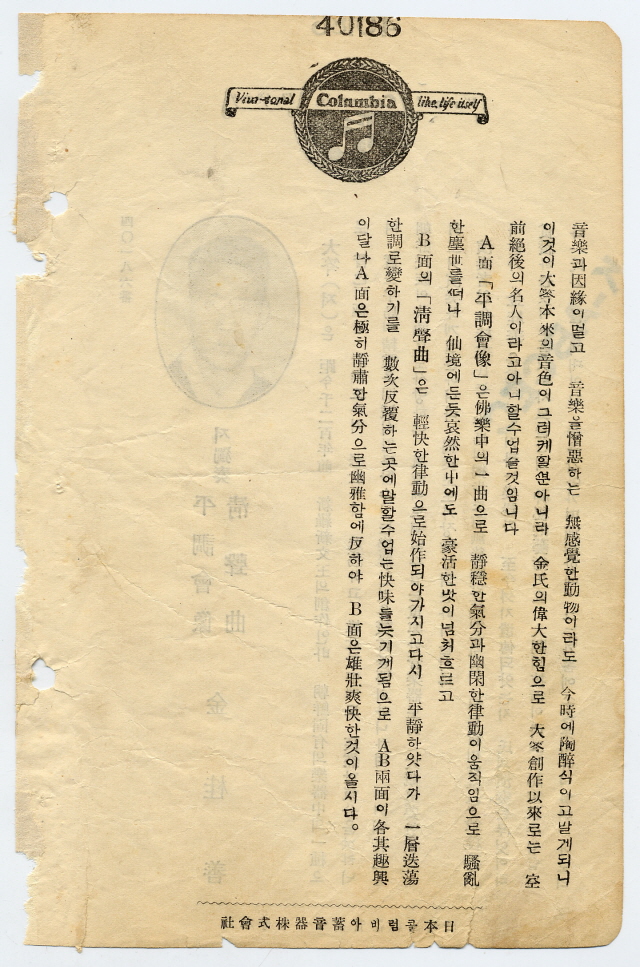 40186
Viva-tonal Columbia like life itself
音樂과因緣이멀고 音樂을憎惡하는 無感覺한動物이라도 今時에陶醉식이고말게되니
이것이大笒本來의音色이그러케할뿐아니라 金氏의偉大한힘으로 大笒創作以來로는 空
前絕後의名人이라고아니할수업슬것임니다
A面「平調會像」은佛樂中의一曲으로 靜穩한氣分과幽閑한律動이움직임으로 騷亂
한塵世를떠나 仙境에든듯哀然한中에도 豪活한맛이넘처흐르고
B面의「淸聲曲」은 輕快한律動으로始作되야가시고다시 平靜하얏다가 一層迭蕩
한調로變하기를 數次反覆하는곳에말할수업는快味를늣기게됨으로 AB兩面이各其趣興
이달나A面은極히靜肅한氣分으로幽雅함에反하야 B面은雄壯爽快한것이올시다。
日本콜럼비아蓄音器株式會社